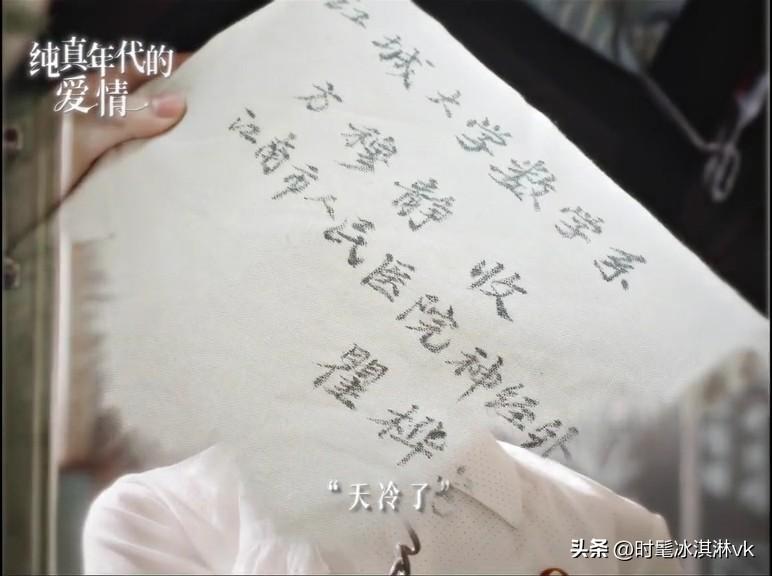 纯真年代的
爱情
江城大学数学系
方穆静 收
江南市人民医院神经外
瞿桦
“天冷了”
头条 @时髦冰淇淋vk